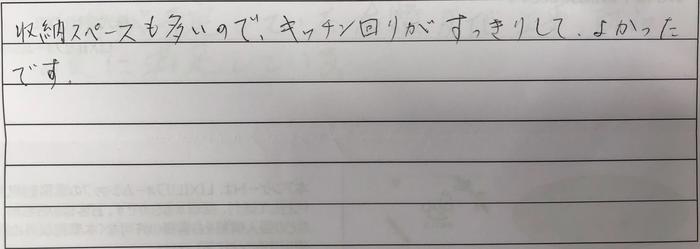 収納スペースも多いので、キッチン回りがすっきりして、よかった
です。